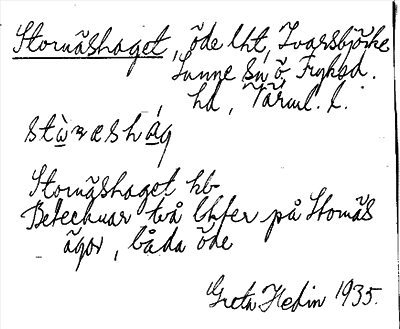 Stornäshaget, öde lht, Ivarsbjörke,
Sunne sn ö, Fryksd.
hd, Värml. l.
Stornäshaget hb
Betecknar två lhter på Stornäs
ägor, båda öde
Greta Hedin 1935.